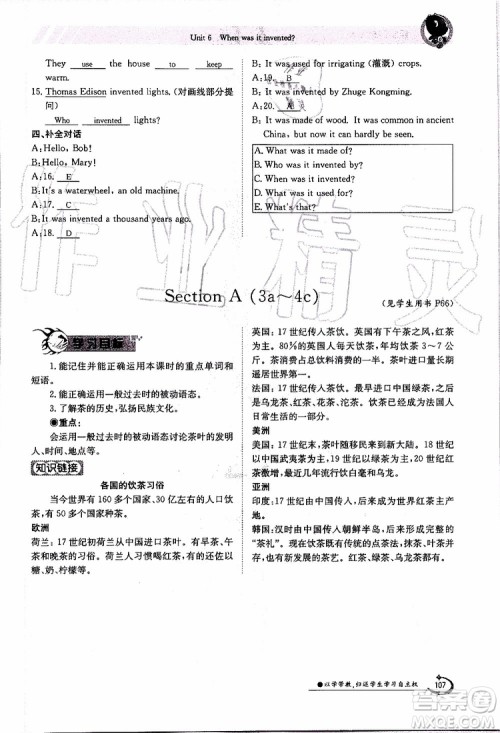 Unit 6 When was it invented?
They use the house to keep
warm.
15. Thomas Edison invented lights. (对画线部分提
问)
Who invented lights?
四、补全对话
A: Hello, Bob!
B: Hello, Mary!
A: 16. E
B: It's a waterwheel, an old machine.
A: 17. C
B: It was invented a thousand years ago.
A: 18. D
B: It was used for irrigating (灌溉) crops.
A: 19. B
B: It was invented by Zhuge Kongming.
A: 20. A
B: It was made of wood. It was common in ancient
China, but now it can hardly be seen.
A. What was it made of?
B. Who was it invented by?
C. When was it invented?
D. What was it used for?
E. What's that?
Section A (3a~4c)
(见学生用书 P66)
学习目标
1. 能记住并能正确运用本课时的重点单词和
短语。
2. 能正确运用一般过去时的被动语态。
3. 了解茶的历史,弘扬民族文化。
重点:
会运用一般过去时的被动语态讨论茶叶的发明
人、时间、用途等。
知识链接
各国的饮茶习俗
当今世界有 160 多个国家、30 亿左右的人口饮
茶,有 50 多个国家种茶。
欧洲
荷兰:17 世纪初荷兰从中国进口茶叶。荷兰有
午后、晚间饮茶的习俗。荷兰人习惯喝红茶,在茶中以
糖、奶、柠檬等为佐料。
英国:17 世纪传入茶饮。英国有下午茶之风,红茶
为主。茶为英国民众的主要饮料,所消费的茶叶量约
占各种饮料总消费的一半。英国茶叶进口量长期
遥居世界第一。
法国:17 世纪传入中国茶,最早进入法国的是绿
茶,之后是乌龙茶、红茶、花茶、沱茶。饮茶方式与英
国类似。
美洲
美国:17 世纪末,茶叶随欧洲移民传入。18 世纪
以中国武夷茶为主,19 世纪以中国绿茶为主,20 世纪
红茶激增,最近几年流行饮乌龙茶和罐装茶水。
亚洲
印度:印度人喜欢在红茶中加牛奶、糖等煮饮。
韩国:汉时由中国传入朝鲜半岛,传入后即有
“茶礼”。其后不断发展,传统的点茶法、抹茶、煎茶法
等至今犹存。红茶、绿茶、乌龙茶等都有。
以学带教,归还学生学习自主权
107
作业精灵
答案圈
MXQE.COM